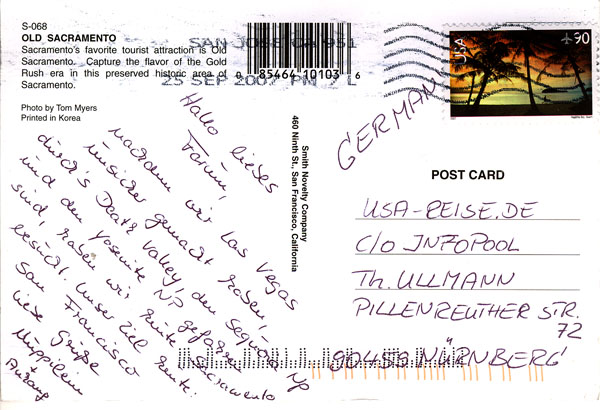 S-068
OLD SACRAMENTO
Sacramento's favorite tourist attraction is Old
Sacramento. Capture the flavor of the Gold
Rush era in this preserved historic area of
Sacramento.
Photo by Tom Myers
Printed in Korea
SAN JOSE CA 951
25 SEP 2007 PM 2 L
0 85464 10103 6
USA
90
Smith Novelty Company
460 Ninth St., San Francisco, California
Hallo liebes
Forum,
nachdem wir Las Vegas
unsicher gemacht haben,
durch's Death Valley, den Sequoia NP
und den Yosemite NP gefahren
sind, haben wir heute Sacramento
besucht. Unser Ziel heute:
San Francisco
liebe Grüße
GERMANY
POST CARD
USA-REISE.DE
C/O INFOPOOL
TH. ULLMANN
PILLENREUTHER STR.
72
90459 NÜRNBERG